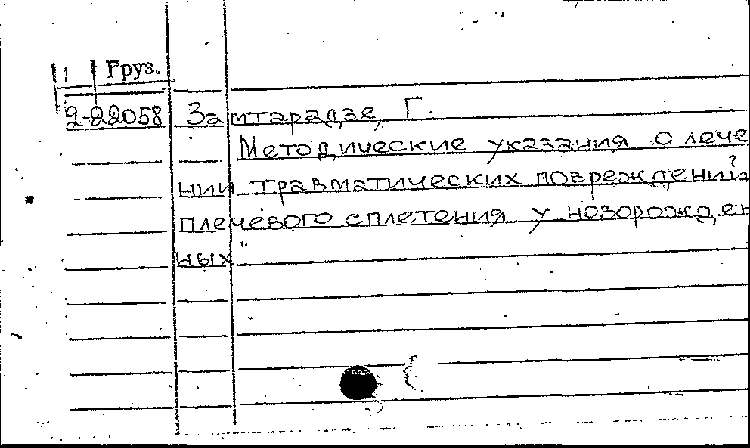 Груз.
2-22058 Замтарадзе, Г.
Методические указания о лече
нии травматических повреждений
плечевого сплетения у новорожден
ных"